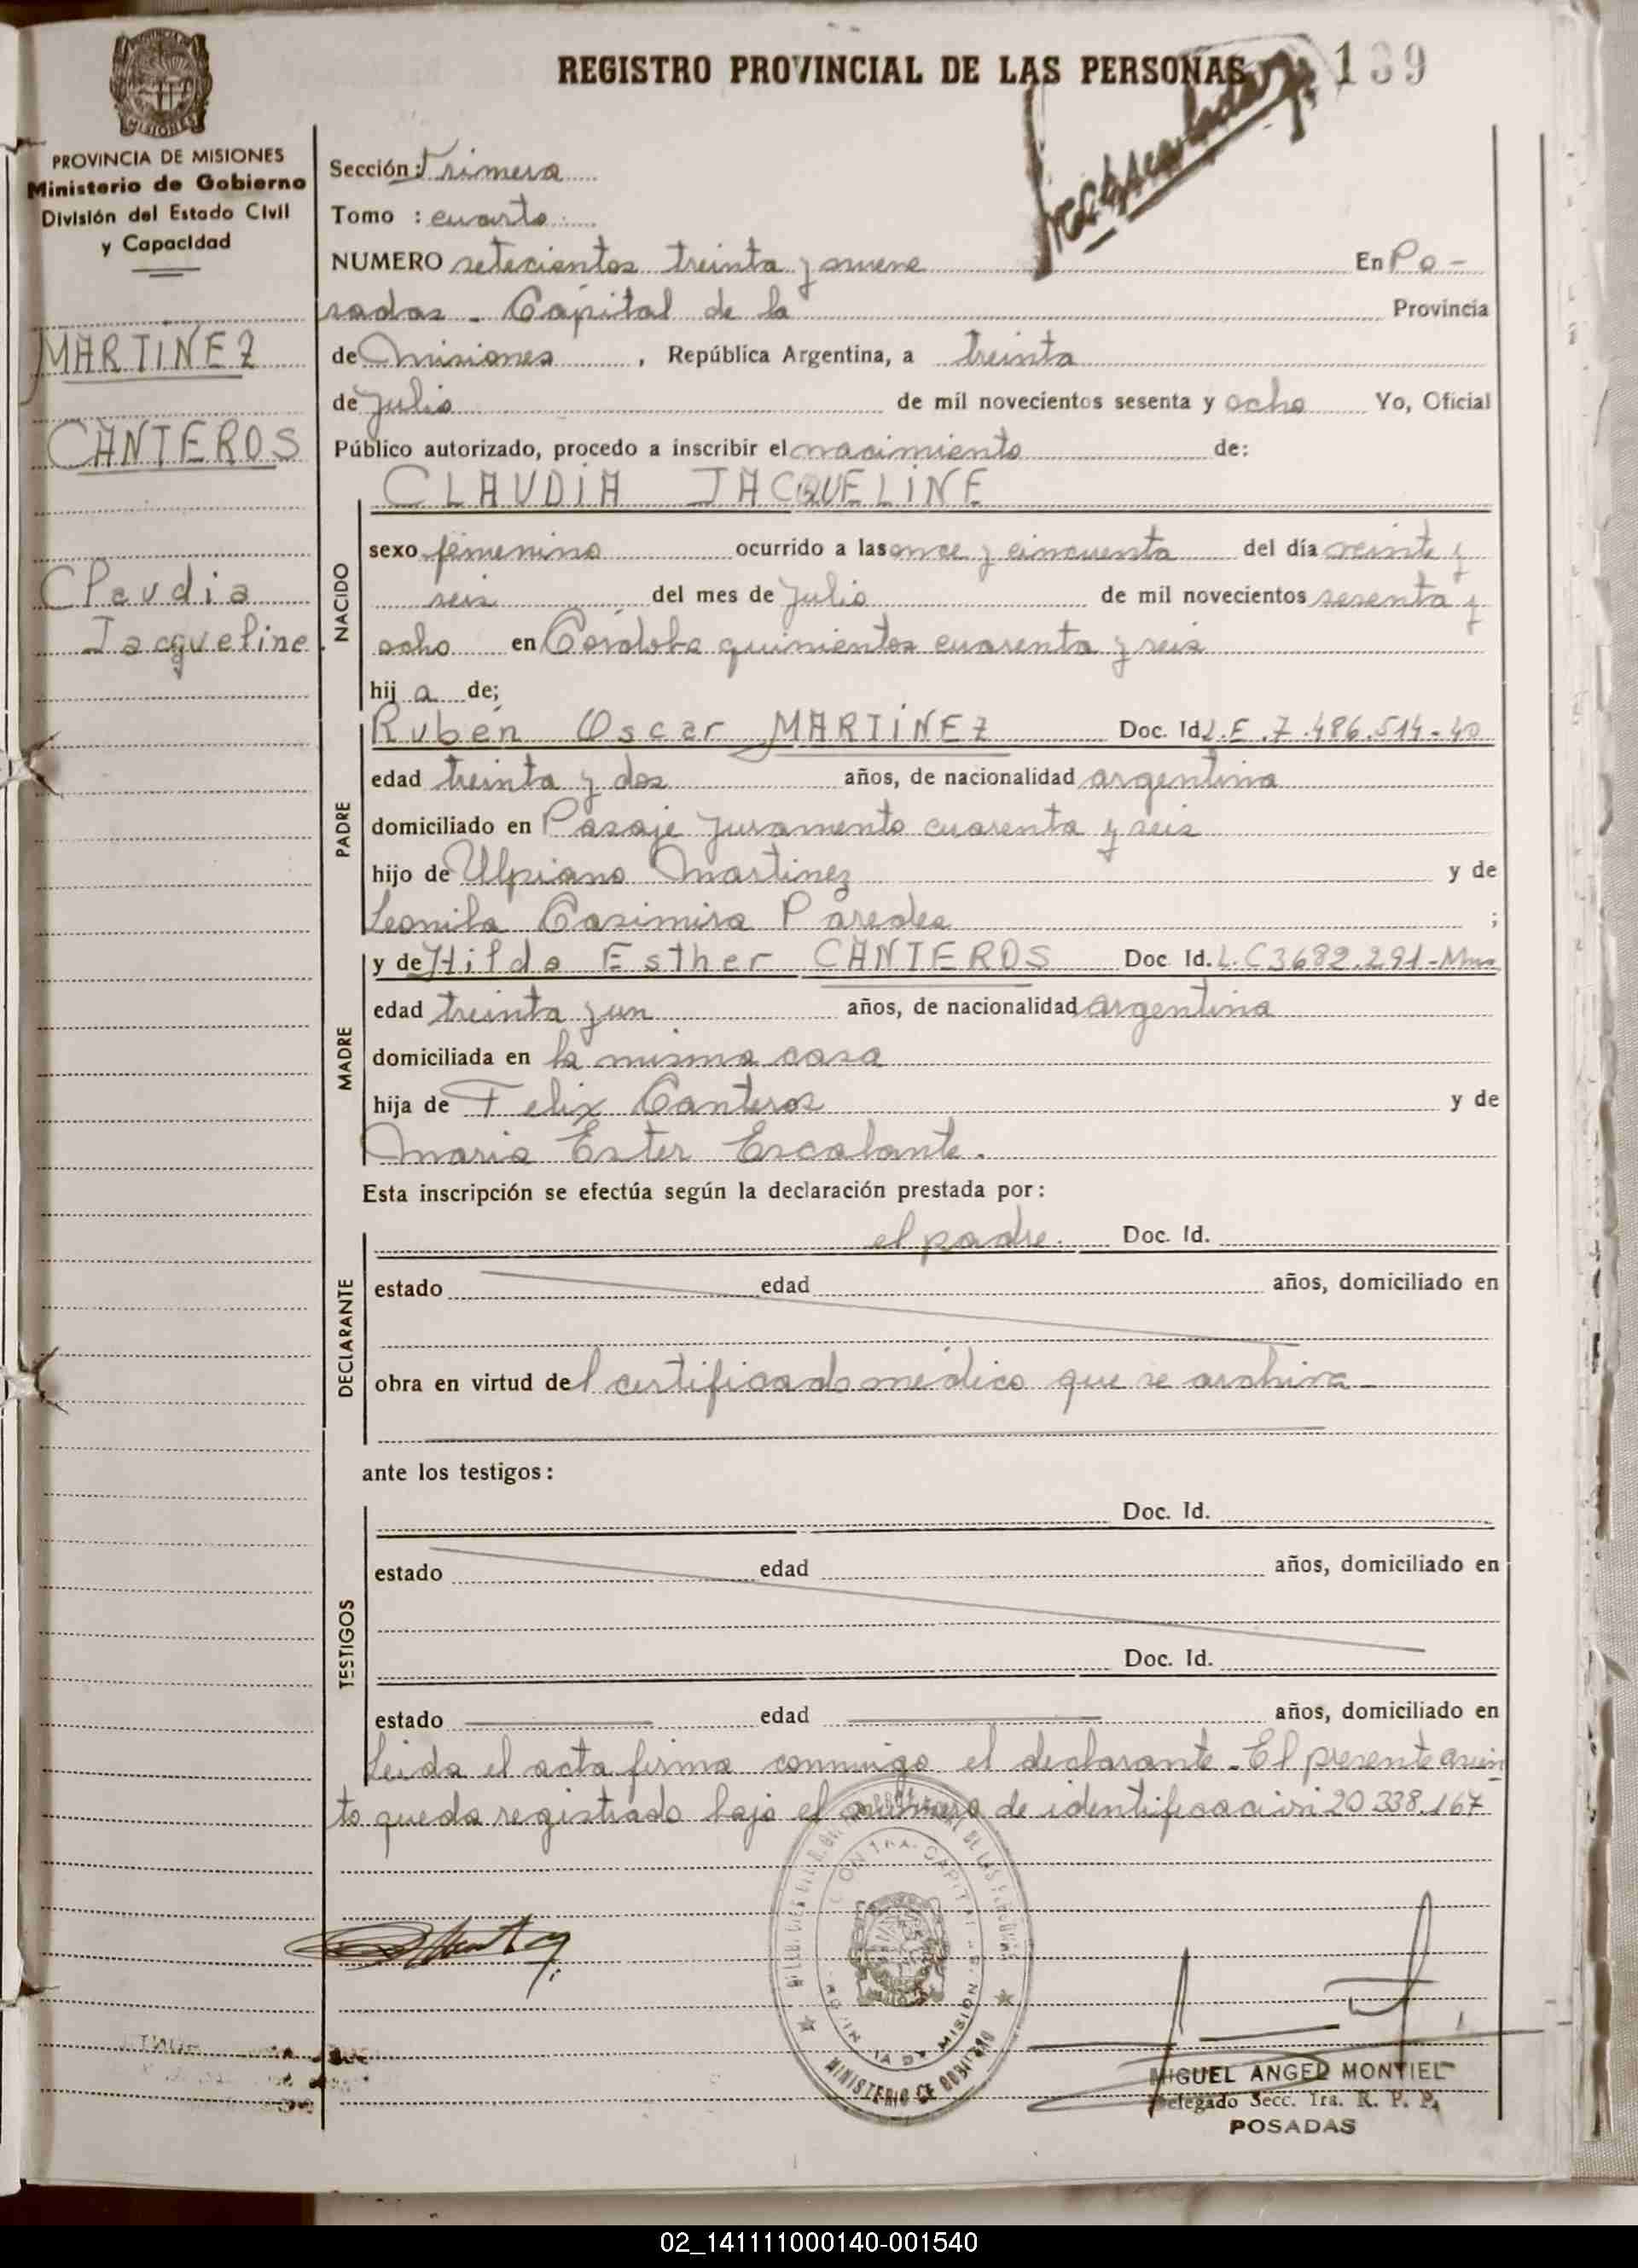 REGISTRO PROVINCIAL DE LAS PERSONAS
139
MISIONES
PROVINCIA DE MISIONES
Ministerio de Gobierno
División del Estado Civil
y Capacidad
MARTINEZ
CANTEROS
Claudia
Jacqueline
Sección: Primera
Tomo : cuarto
NUMERO setecientos treinta y nueve En Po-
sadas - Capital de la Provincia
de Misiones , República Argentina, a treinta
de Julio de mil novecientos sesenta y ocho Yo, Oficial
Público autorizado, procedo a inscribir el nacimiento de:
CLAUDIA JACQUELINE
NACIDO
sexo femenino ocurrido a las once y cincuenta del día veinte y
seis del mes de Julio de mil novecientos sesenta y
ocho en Córdoba quinientos cuarenta y seis
hij a de;
PADRE
Rubén Oscar MARTINEZ Doc. Id. L.E. 7.486.514-40
edad treinta y dos años, de nacionalidad argentina
domiciliado en Pasaje Juramento cuarenta y seis
hijo de Ulpiano Martinez y de
Leonila Casimira Paredes ;
MADRE
y de Hilda Esther CANTEROS Doc Id. L.C 3682.291-Mnes
edad treinta y un años, de nacionalidad argentina
domiciliada en la misma casa
hija de Felix Canteros y de
Maria Ester Escalante.
Esta inscripción se efectúa según la declaración prestada por:
DECLARANTE
el padre. Doc. Id.
estado edad años, domiciliado en
obra en virtud del certificado médico que se archiva
ante los testigos:
TESTIGOS
Doc. Id.
estado edad años, domiciliado en
Doc. Id.
estado edad años, domiciliado en
Leida el acta firma conmigo el declarante - El presente asien
to queda registrado bajo el número de identificación 20 338.167
MINISTERIO DE GOBIERNO
MIGUEL ANGEL MONTIEL
Delegado Secc. 1ra. R. P. P.
POSADAS
02_141111000140-001540